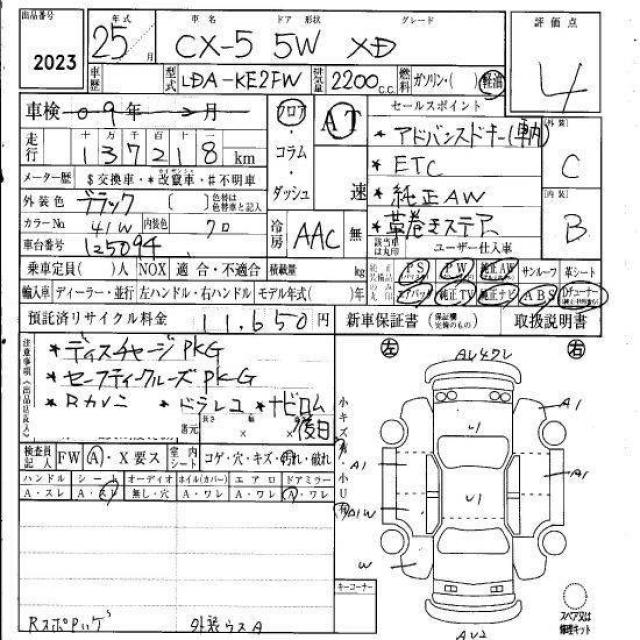 出品番号 2023
年式 25 / 月 車名 CX-5 ドア 5W 形状 グレード XD
評価点 4
車歴 型式 LDA-KE2FW 排気量 2200 C.C. 燃料 ガソリン・( ) 軽油
車検 09年 2月 フロア・コラム・ダッシュ AT 速
セールスポイント
* アドバンスドキー(車内)
* ETC
* 純正AW
* 革巻きステア
外装 C
内装 B
走行 十 万 千 百 十 一 137218 km
メーター歴 $交換車・*改竄車・#不明車
外装色 ブラック ( ) 色替は色替車と記入
カラーNo 41W 内装色 クロ
冷房 AAC 無
該当車は丸印 ユーザー仕入車
車台番号 125094
乗車定員( )人 NOX 適合・不適合 積載量 kg
PS PW 純正AW サンルーフ 革シート
輸入車 ディーラー・並行 左ハンドル・右ハンドル モデル年式( )年
エアバッグ 純正TV 純正ナビ ABS Dチューナー
預託済リサイクル料金 11,650円 新車保証書 (保証継交換のもの) 取扱説明書
注意事項(出品店記入)
* ディスチャージPKG
* セーフティクルーズPKG
* Rカメラ * ドラレコ * ナビロム後日
還元 長さ 幅 × ×
検査員記入 FW A・X要ス 室内シート コゲ・穴・キズ・汚れ・破れ
ハンドル シート オーディオ ホイル(カバー) エアロ ドアミラー
A・スレ A・スレ 無し・穴 A・ワレ A・ワレ A・ワレ
RスポPハゲ 外装ウスA
左 右
小キズ有・小U有
A1
U1
A1
A1
U1
A1W
W
キーコーナー
AU2
スペア又は修理キット